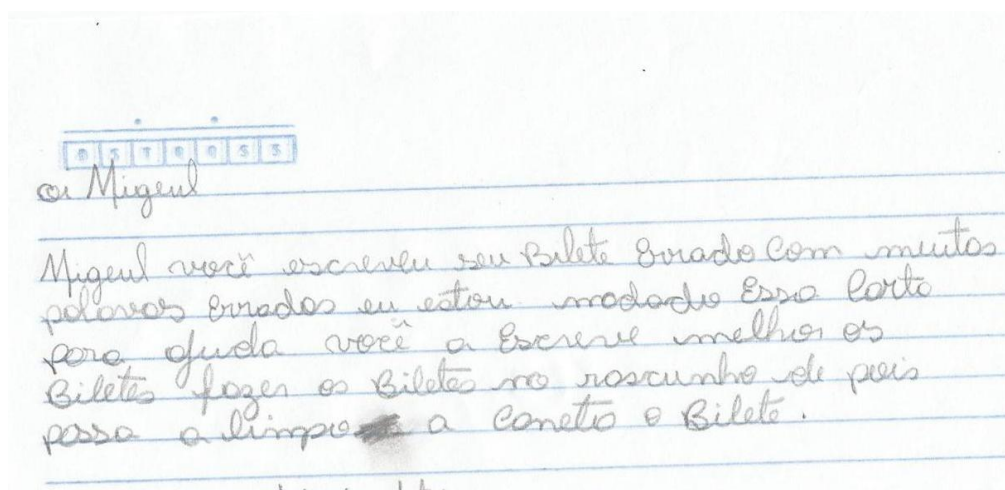 oi Migeul
Migeul você escreveu seu Bilete Errado Com muitas
palavas Erradas eu estou madado Essa Carta
para ajuda você a Escreve melhor os
Biletes fazer os Biletes no rascunho de pois
passa a limpo a caneta o Bilete.